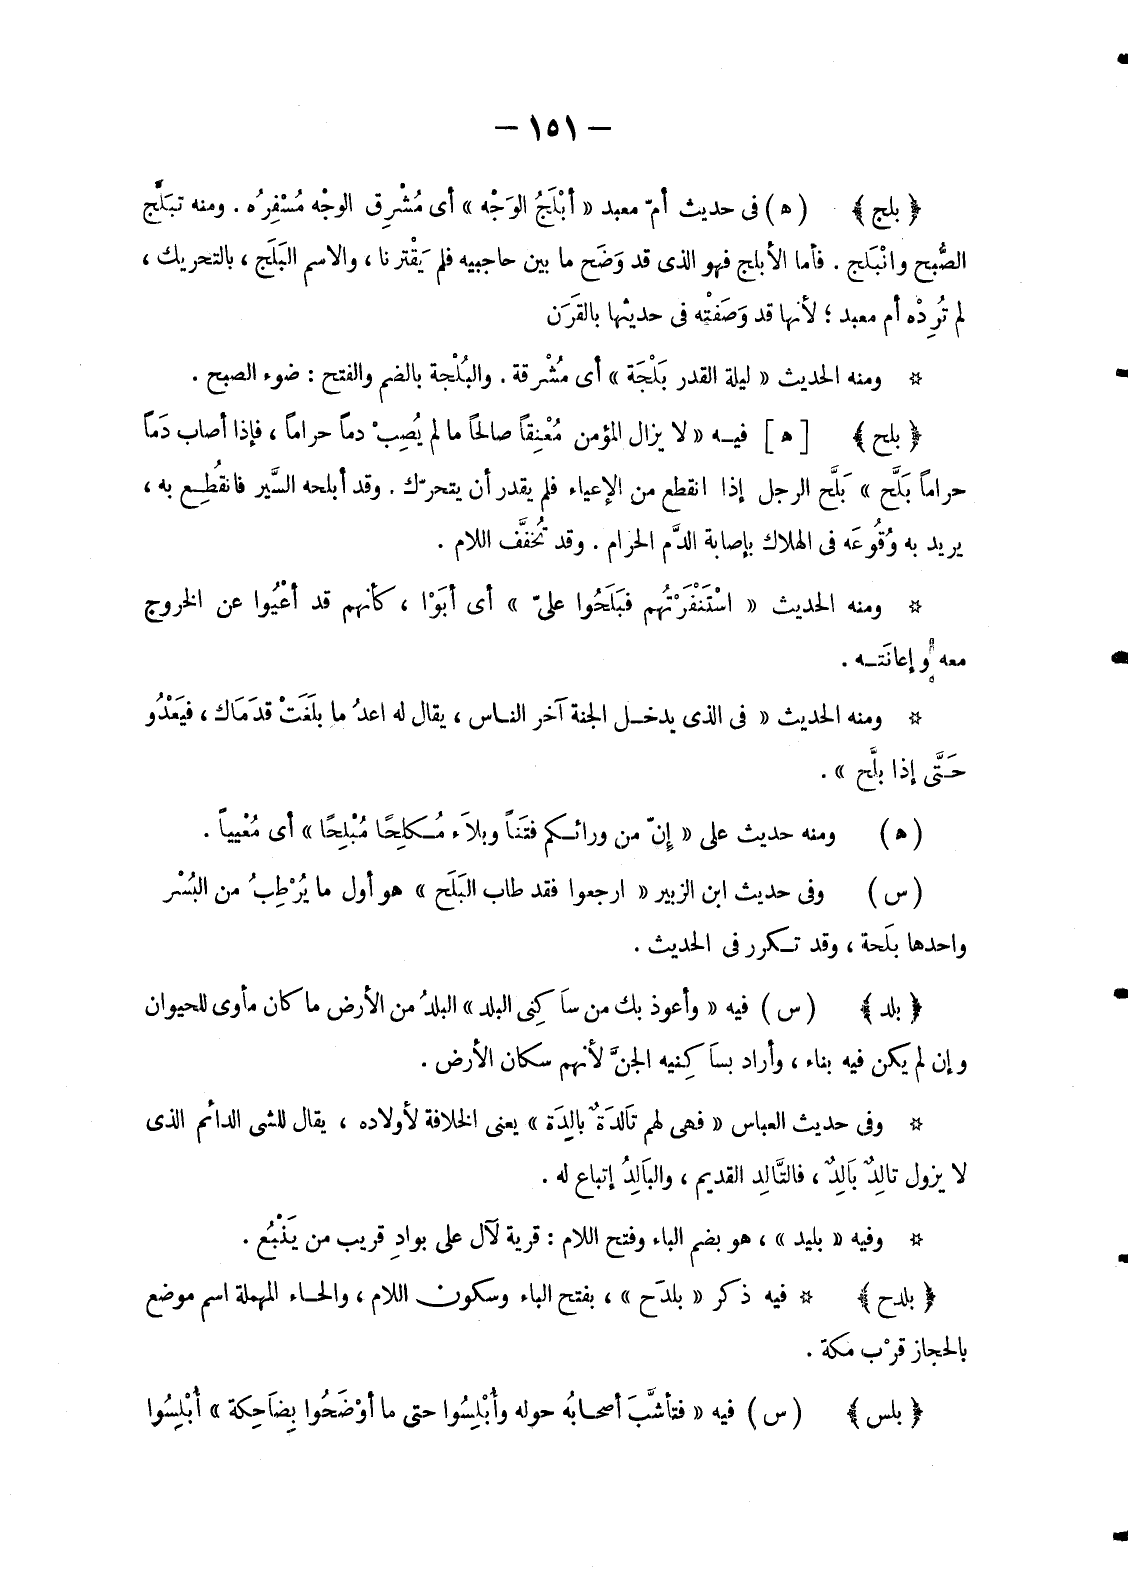 — ١٥١ —
﴿ بلج ﴾ ( ه ) فى حديث أمّ معبد « أبْلَجُ الوَجْه » أى مُشْرِق الوجْه مُسْفِرُه . ومنه تبَلَّج
الصُّبح وانْبَلج . فأما الأبلج فهو الذى قد وَضَح ما بين حاجبيه فلم يَقْترنا ، والاسم البَلَج ، بالتحريك ،
لم تُرِدْه أم معبد ؛ لأنها قد وَصَفَتْه فى حديثها بالقَرَن
* ومنه الحديث « ليلة القدر بَلْجَة » أى مُشْرقة . والبُلْجة بالضم والفتح : ضوء الصبح .
﴿ بلح ﴾ [ ه ] فيه « لا يزال المؤمن مُعْنِقاً صالحًا ما لم يُصِبْ دماً حراماً ، فإذا أصاب دَماً
حراماً بَلَّح » بَلَّح الرجل إذا انقطع من الإعياء فلم يقدر أن يتحرّك . وقد أبلحه السَّير فانقُطِع به ،
يريد به وُقُوعَه فى الهلاك بإصابة الدَّم الحرام . وقد تُخفَّف اللام .
* ومنه الحديث « اسْتَنْفَرْتُهم فبَلَحُوا علىّ » أى أبَوْا ، كأنهم قد أعْيُوا عن الخروج
معه وإعانَته .
* ومنه الحديث « فى الذى يدخل الجنة آخر الناس ، يقال له اعدُ ما بلَغَتْ قدَمَاك ، فيَعْدُو
حَتَّى إذا بلَّح » .
( ه ) ومنه حديث على « إنّ من ورائكم فتَناً وبلاَء مُكلِحًا مُبْلِحًا » أى مُعْيياً .
( س ) وفى حديث ابن الزبير « ارجعوا فقد طاب البَلَح » هو أول ما يُرْطِبُ من البُسْر
واحدها بلَحة ، وقد تكرر فى الحديث .
﴿ بلد ﴾ ( س ) فيه « وأعوذ بك من ساَكِنى البلد » البلدُ من الأرض ما كان مأوى للحيوان
وإن لم يكن فيه بناء ، وأراد بساَكِنيه الجنَّ لأنهم سكان الأرض .
* وفى حديث العباس « فهى لهم تَالدَةٌ بالِدَة » يعنى الخلافة لأولاده ، يقال للشى الدائم الذى
لا يزول تالِدٌ بَالِدٌ ، فالتَّالِد القديم ، والبَالِدُ إتباع له .
* وفيه « بليد » ، هو بضم الباء وفتح اللام : قرية لآل على بوادٍ قريب من يَنْبُع .
﴿ بلدح ﴾ * فيه ذكر « بلدَح » ، بفتح الباء وسكون اللام ، والحاء المهملة اسم موضع
بالحجاز قرْب مكة .
﴿ بلس ﴾ ( س ) فيه « فتأشَّبَ أصحابُه حوله وأُبْلِسُوا حتى ما أوْضَحُوا بِضَاحِكة » أُبْلِسُوا